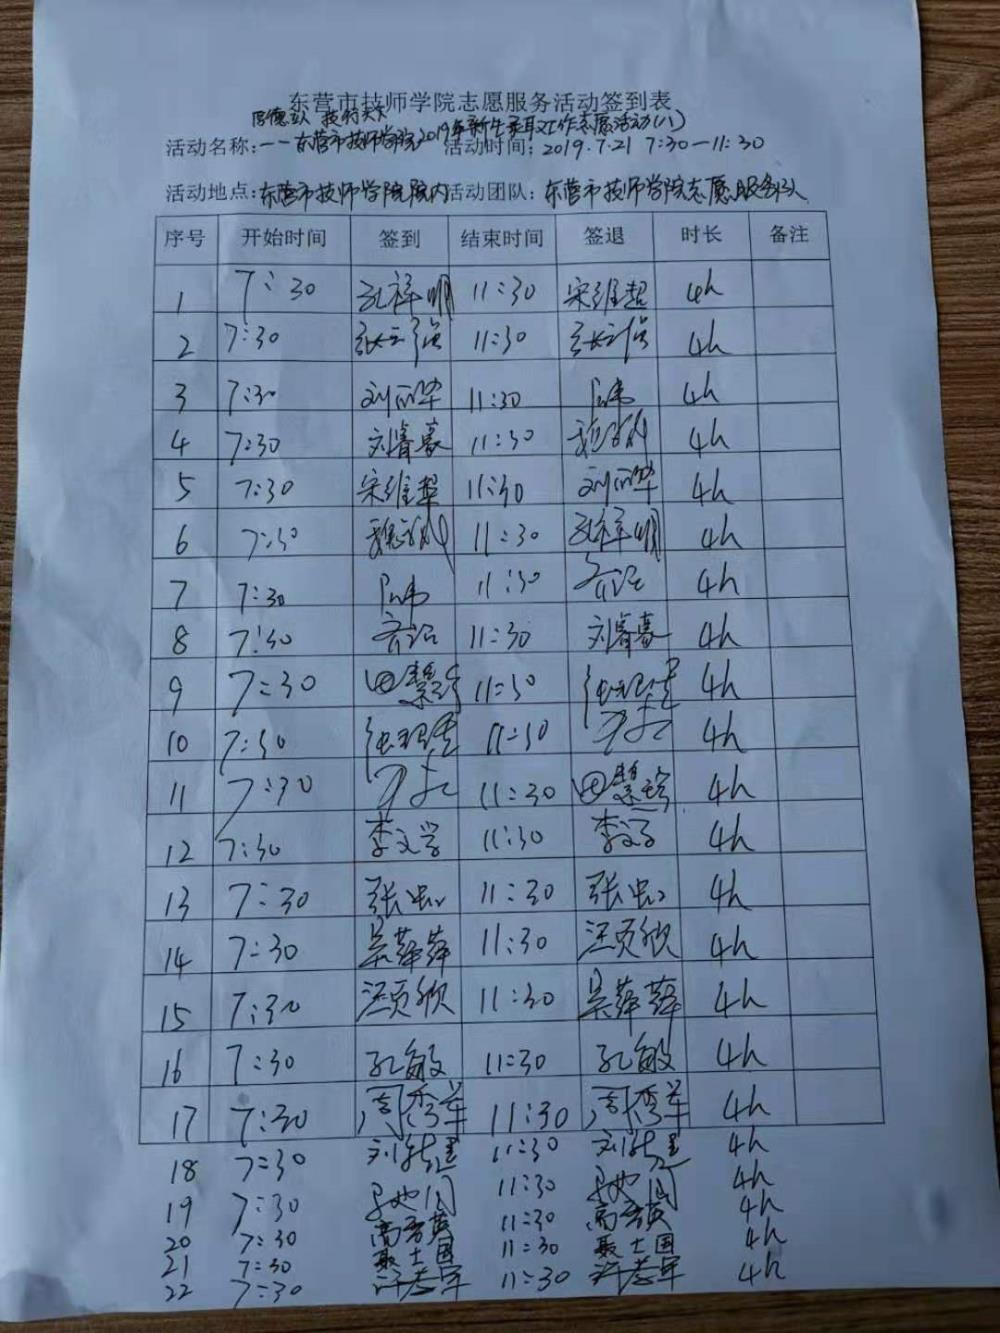 东营市技师学院志愿服务活动签到表
厚德立人 技行天下
活动名称:——东营市技师学院2019年新生录取工作志愿活动(八) 活动时间: 2019.7.21 7:30—11:30
活动地点:东营市技师学院院内 活动团队: 东营市技师学院志愿服务队
序号 开始时间 签到 结束时间 签退 时长 备注
1 7:30 孔祥明 11:30 宋维超 4h
2 7:30 11:30 4h
3 7:30 刘丽华 11:30 4h
4 7:30 刘春喜 11:30 4h
5 7:30 宋维超 11:30 刘丽华 4h
6 7:30 11:30 孔祥明 4h
7 7:30 11:30 4h
8 7:30 11:30 刘春喜 4h
9 7:30 田慧珍 11:30 4h
10 7:30 11:30 4h
11 7:30 11:30 田慧珍 4h
12 7:30 李文学 11:30 李文学 4h
13 7:30 张虹 11:30 张虹 4h
14 7:30 吴萍萍 11:30 汪贞欣 4h
15 7:30 汪贞欣 11:30 吴萍萍 4h
16 7:30 孔敏 11:30 孔敏 4h
17 7:30 周秀华 11:30 周秀华 4h
18 7:30 11:30 4h
19 7:30 11:30 4h
20 7:30 11:30 4h
21 7:30 聂士国 11:30 聂士国 4h
22 7:30 许志军 11:30 许志军 4h